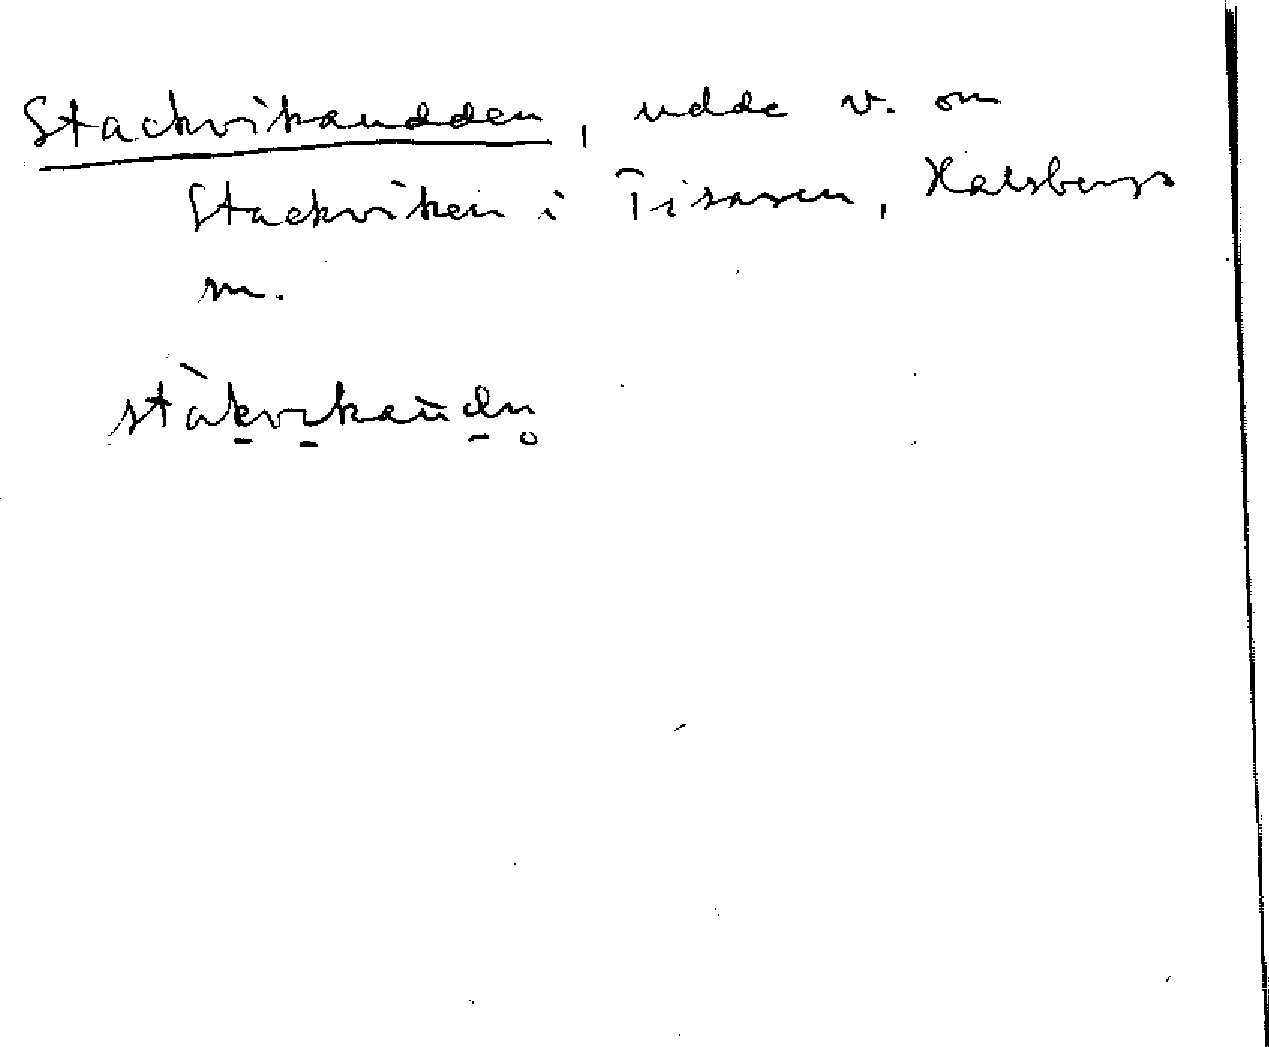 Stackvikaudden, udde v. om
Stackviken i Tisaren, Halsbergs
m.
stàk̲vi̲kaūd̲n̥